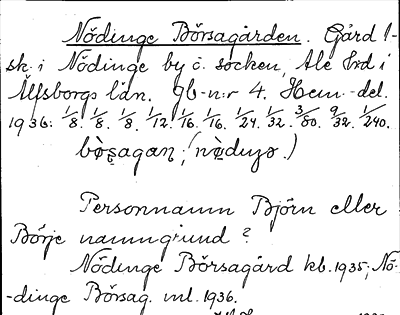 Nödinge Börsagården. Gård 1-
sk. i Nödinge by o. socken, Ale hrd i
Älfsborgs län. Jb-n:r 4. Hem.-del.
1936: 1/8. 1/8. 1/8. 1/12. 1/16. 1/16. 1/24. 1/32. 3/80. 9/32. 1/240.
Personnamn Björn eller
Börje namngrund?
Nödinge Börsagård kb. 1935; Nö-
-dinge Börsag. ml. 1936.